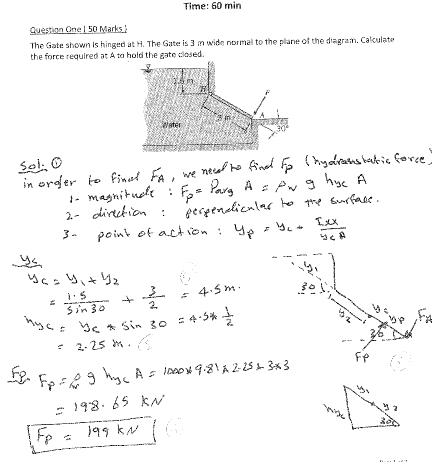 Time: 60 min
Question One ( 50 Marks )
The Gate shown is hinged at H. The Gate is 3 m wide normal to the plane of the diagram. Calculate
the force required at A to hold the gate closed.
m
H
F
3 m
A
Water
30°
Sol: ①
in order to find F_A, we need to find F_P (hydrostatic force)
1- magnitude : F_P = P_avg A = ρ_w g h_yc A
2- direction : perpendicular to the surface.
3- point of action : y_p = y_c + I_xx / y_c A
y_c
y_c = y_1 + y_2
= 1.5 / Sin 30 + 3 / 2 = 4.5 m.
h_yc = y_c * Sin 30 = 4.5 * 1/2
= 2.25 m.
y_1
30
y_2
y_c
y_p
30
F_A
F_P
F_P
F_P = ρ_w g h_yc A = 1000*9.81*2.25*3*3
= 198.65 kN
F_P = 199 kN
y_1
h_yc
y_2
30